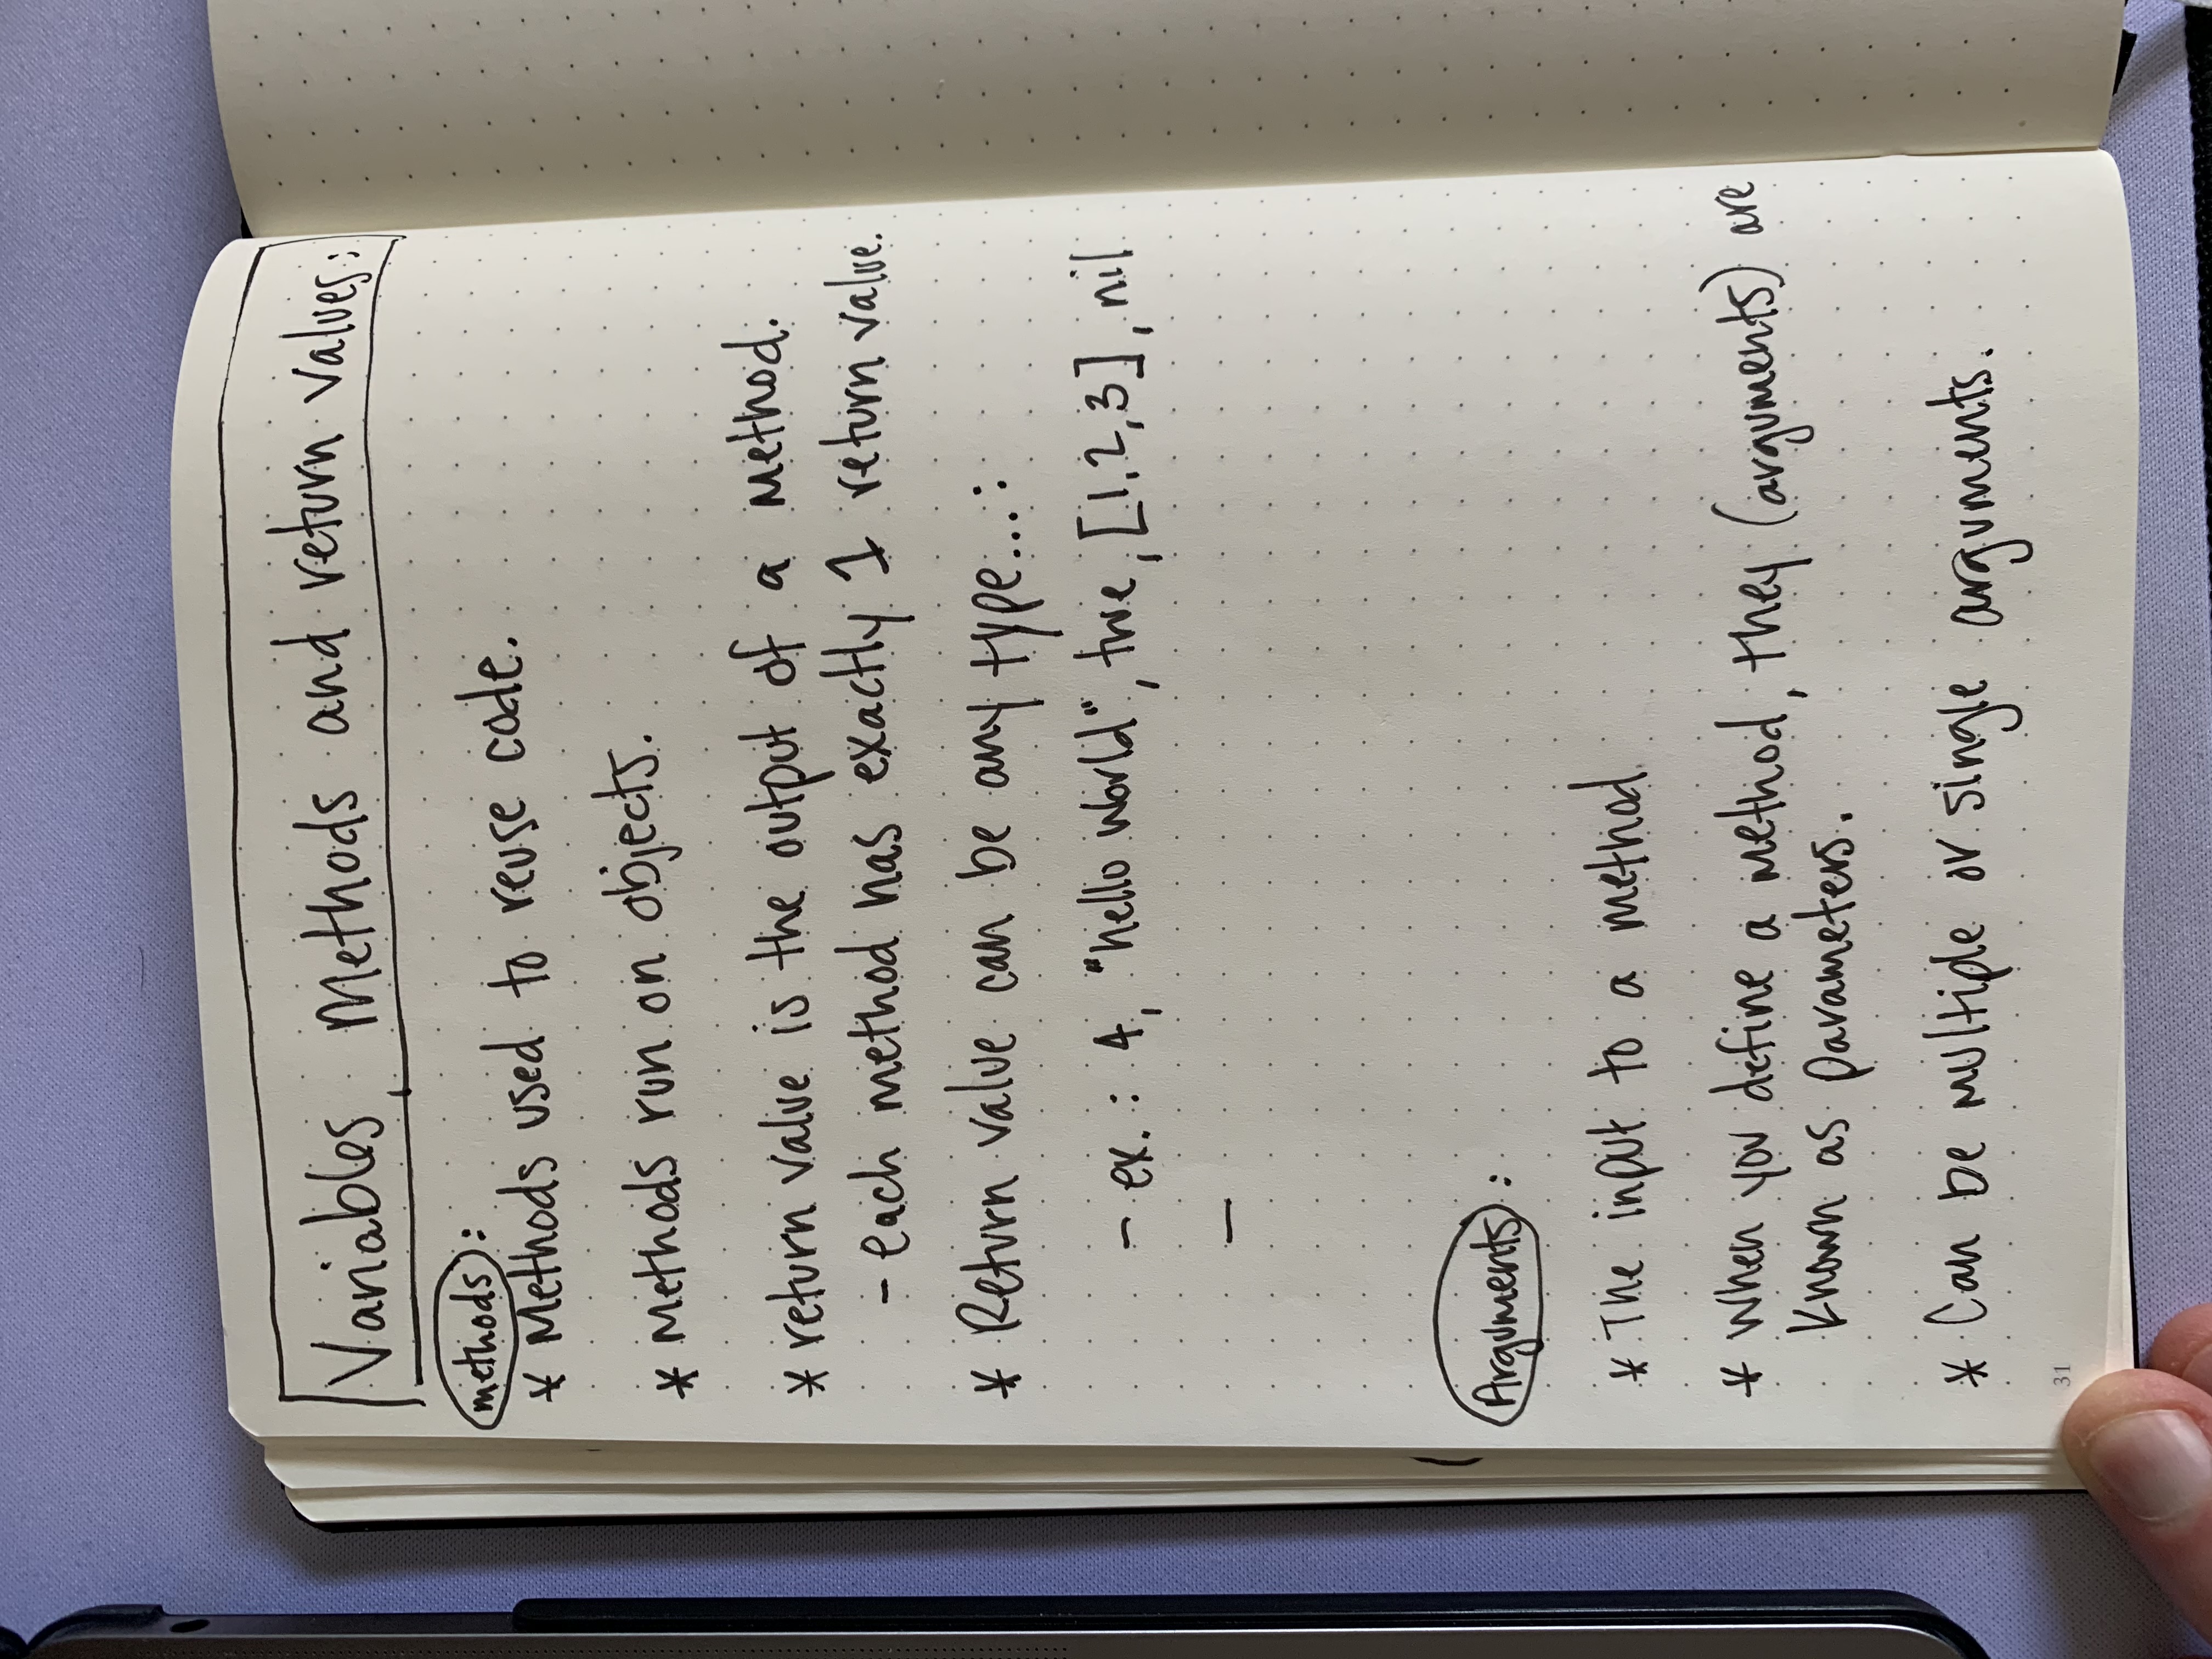 Variables Methods and return values:
methods:
* Methods used to reuse code.
* Methods run on objects.
* return value is the output of a method.
- each method has exactly 1 return value.
* Return value can be any type...:
- ex.: 4, "hello world", true, [1,2,3], nil
-
Arguments:
* The input to a method
* When you define a method, they (arguments) are
known as parameters.
* Can be multiple or single arguments.
31